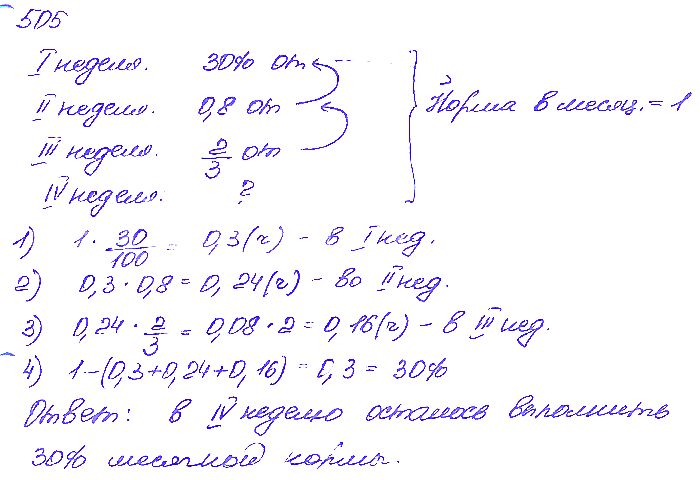 505
I неделя. 30% от
II неделя. 0,8 от
III неделя. 2/3 от
IV неделя. ?
Норма в месяц. = 1
1) 1 · 30/100 = 0,3(ч) - в I нед.
2) 0,3 · 0,8 = 0,24(ч) - во II нед.
3) 0,24 · 2/3 = 0,08 · 2 = 0,16(ч) - в III нед.
4) 1-(0,3+0,24+0,16) = 0,3 = 30%
Ответ: в IV неделю осталось выполнить
30% месячной нормы.